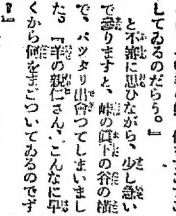 してゐるのだらう。』
と不審に思ひながら、少し急い
で參りますと、峠の眞下の谷の橋
で、バツタリ出會つてしまいまし
た。『羊の親仁さん、こんなに早
くから何をまごついてゐるのです
』